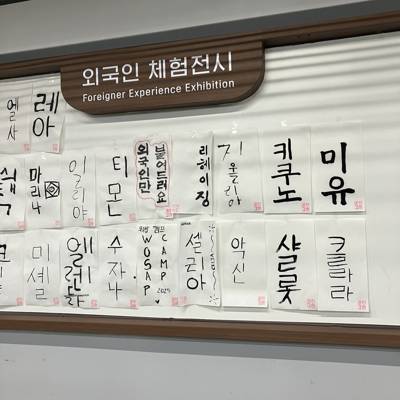 외국인 체험전시
Foreigner Experience Exhibition
엘사
레아
마리나
일리야
티몬
외국인만
붙여드려요
리헤이징
지울리아
키쿠노
미유
미셸
엘런
수자나
WOSAP
CAMP
2025
셀리아
악신
샬롯
클라라